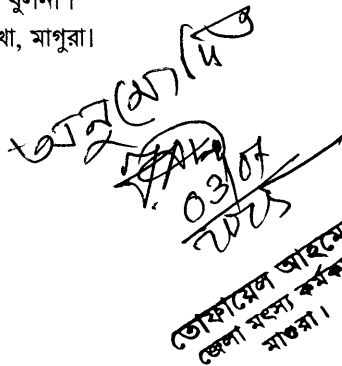 খুলনা।
খা, মাগুরা।
অনুমোদিত
03/07
তোফায়েল আহমে
জেলা মৎস্য কর্মক
মাগুরা।